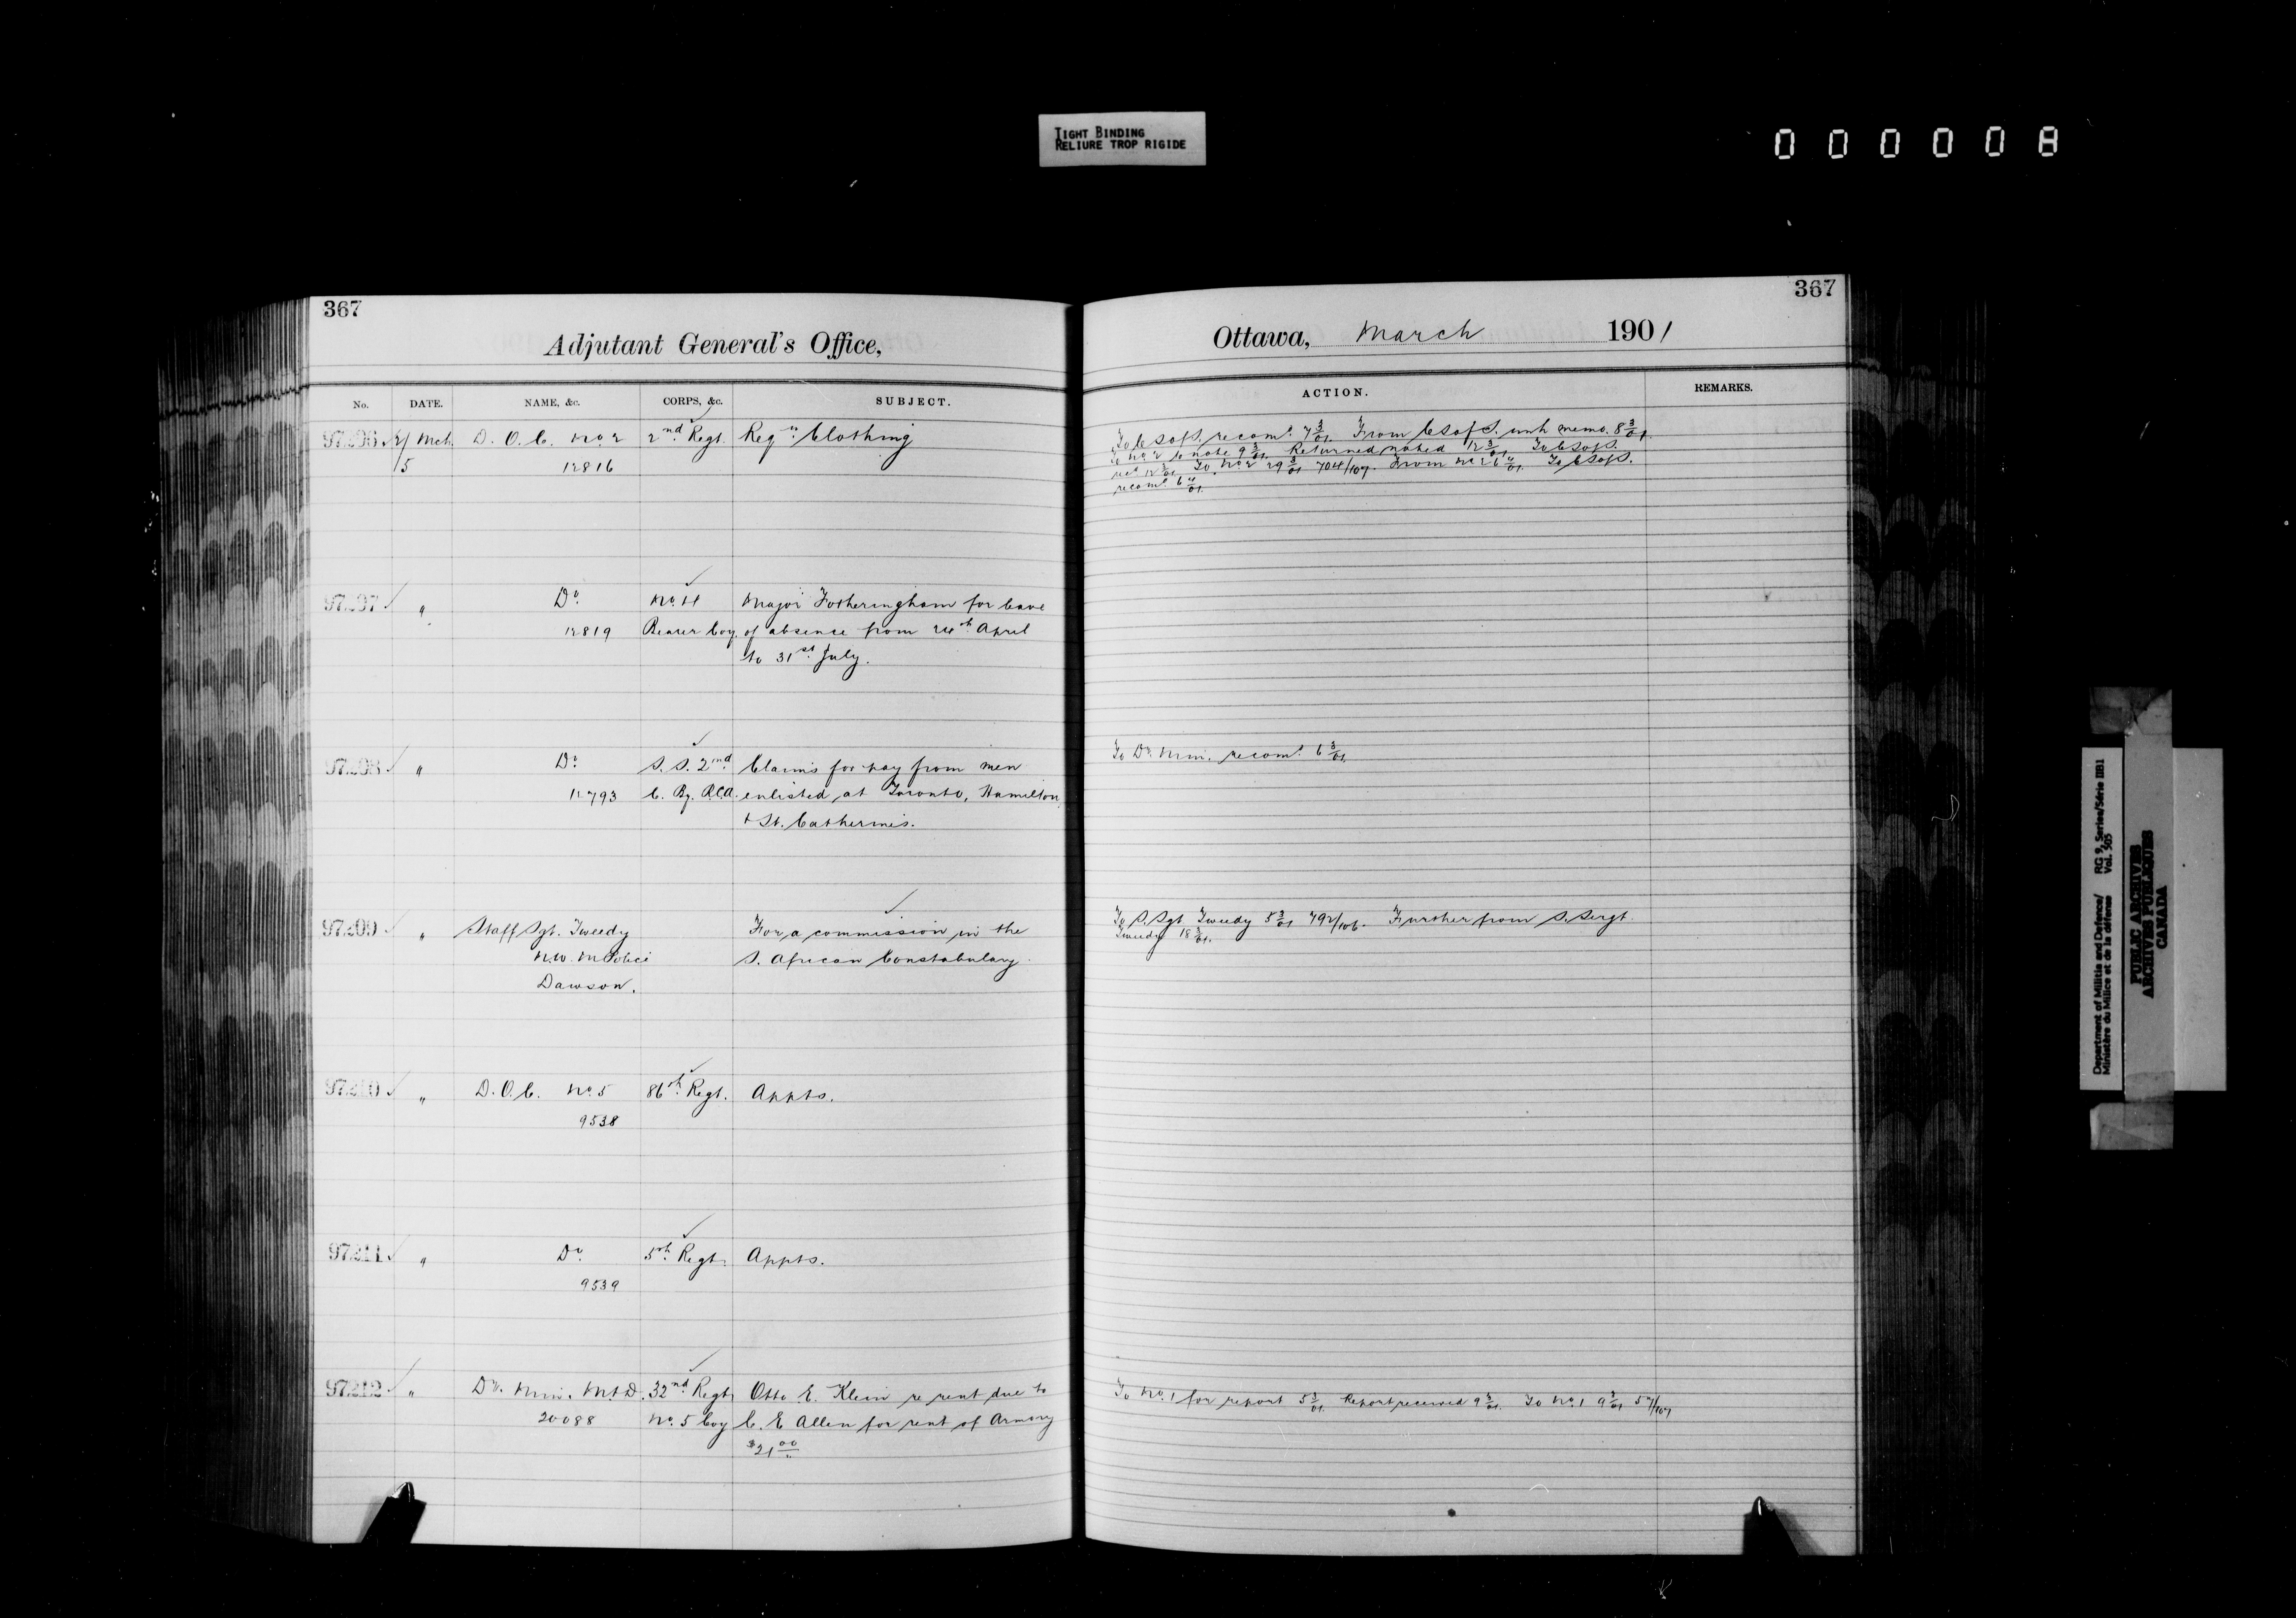 TIGHT BINDING
RELIURE TROP RIGIDE
000008
367
Adjutant General's Office,
No. DATE. NAME, &c. CORPS, &c. SUBJECT.
97206 Mch. D. O. C. No. 2 2nd Regt. Reqn. Clothing
5 12816
97207 " Do. No. 4 Major Fotheringham for leave
12819 Bearer Coy. of absence from 24th April
to 31st July.
97208 " Do. S. S. 2nd Claims for pay from men
12793 C. By. R.C.A. enlisted at Toronto, Hamilton
+ St. Catherines.
97209 " Staff Sgt. Tweedy For a commission in the
N.W. M Police S. African Constabulary.
Dawson.
97210 " D. O. C. No. 5 86th Regt. Appts.
9538
97211 " Do. 5th Regt. Appts.
9539
97212 " Dr. Min. M & D. 32nd Regt. Otto E. Klein re rent due to
20088 No. 5 Coy C. E. Allen for rent of Armory
$21 00
367
Ottawa, March 1901
ACTION. REMARKS.
To C S of S. recomd. 7 3/01. From C S of S. with memo. 8 3/01.
To No. 2 to note 9 3/01. Returned noted 12 3/01. To C S of S.
12 3/01. To No. 2 29 3/01 704/107. From No. 2 6 4/01. To C S of S.
recomd. 6 4/01.
To Dr. Min. recomd. 6 3/01.
To S. Sgt. Tweedy 5 3/01 792/106. Further from S. Sergt.
Tweedy 18 3/01.
To No. 1 for report 5 3/01. Report received 9 3/01. To No. 1 9 3/01
Department of Militia and Defence/ RG 9, Series/Série IIB1
Ministère du Milice et de la défense Vol. 505
PUBLIC ARCHIVES
ARCHIVES PUBLIQUES
CANADA